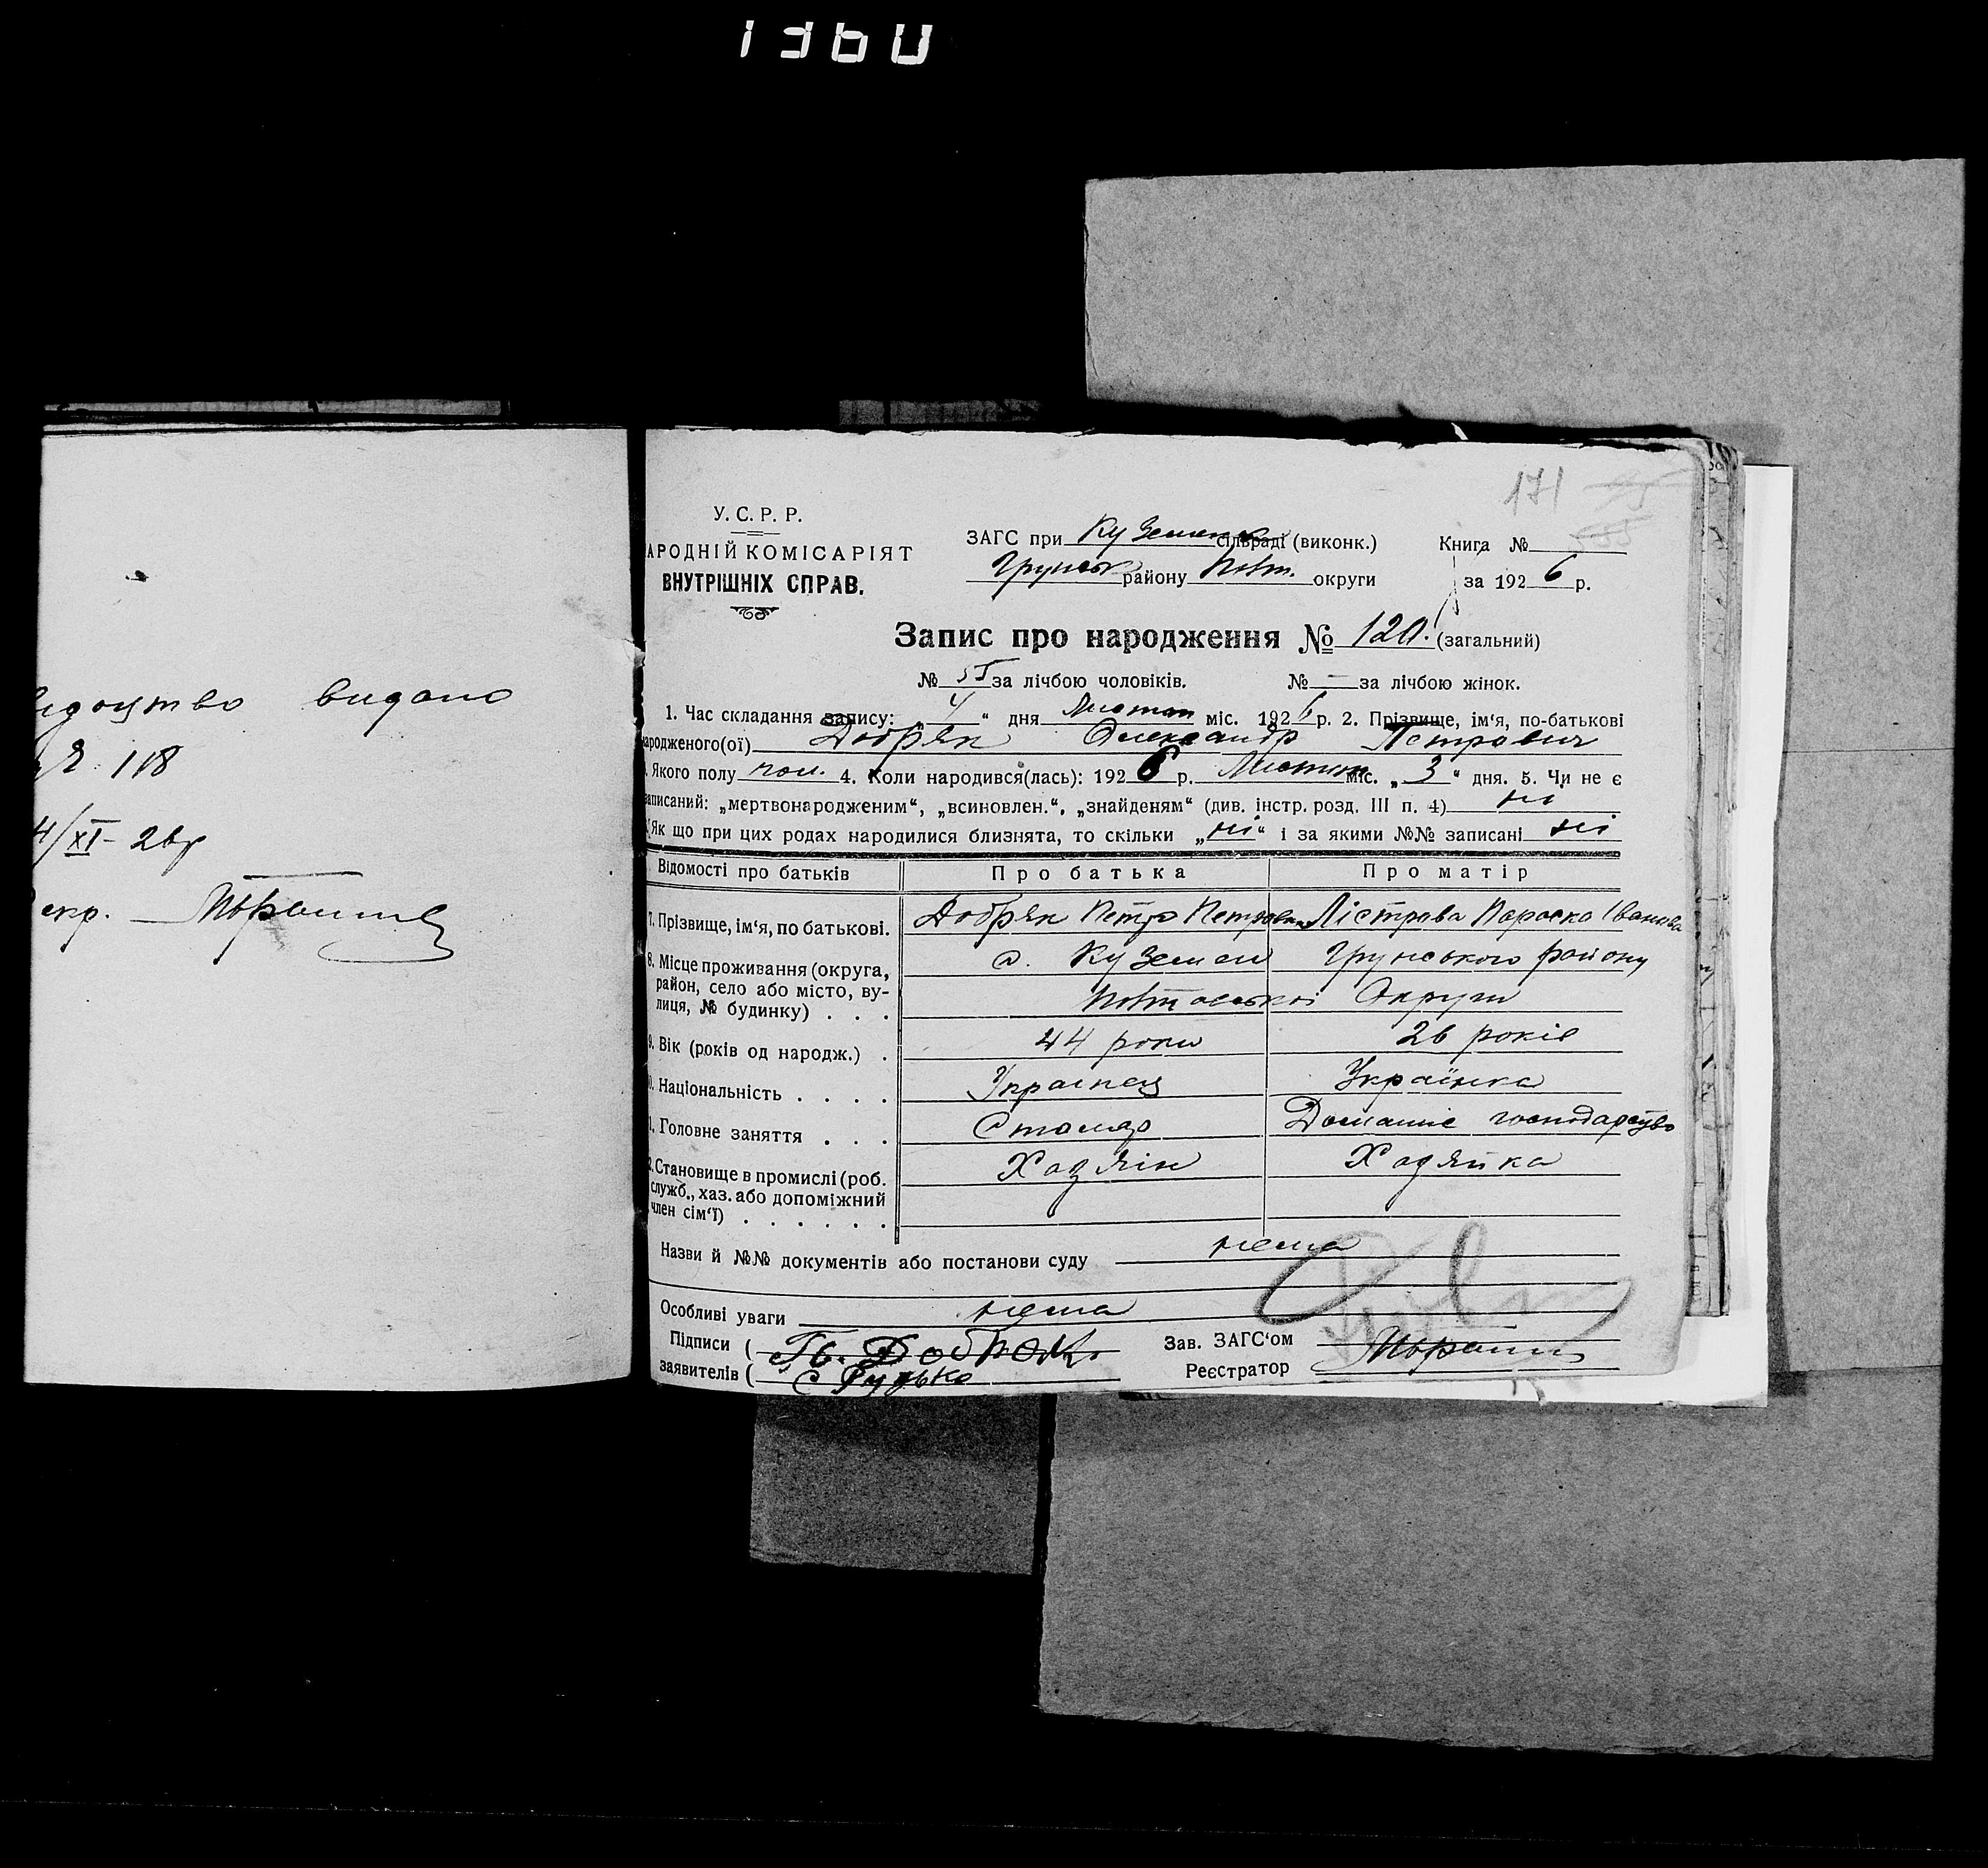 1360
171
У. С. Р. Р.
АРОДНІЙ КОМІСАРІЯТ
ВНУТРІШНІХ СПРАВ.
ЗАГС при КуЗемен сільраді (виконк.)
Грунськ району Полт. округи
Книга №
за 1926 р.
Запис про народження № 120. (загальний)
№ 55 за лічбою чоловіків. № – за лічбою жінок.
1. Час складання запису: „4“ дня Листоп міс. 1926 р. 2. Прізвище, ім‘я, по-батькові
ародженого(ої) Добряк Олександр Петрович
. Якого полу чол. 4. Коли народився(лась): 1926 р. Листоп міс. „3“ дня. 5. Чи не є
записаний: „мертвонародженим“, „всиновлен.“, „знайденям“ (див. інстр. розд. III п. 4) ні
Як що при цих родах народилися близнята, то скільки „ні“ і за якими №№ записані ні
Відомості про батьків Про батька Про матір
7. Прізвище, ім‘я, по батькові. Добряк Петро Петрович Параска Іванівна
8. Місце проживання (округа, с. Ку Земен Грунського району
район, село або місто, ву- Полтавської Округи
лиця, № будинку) . . .
9. Вік (років од народж.) . 44 роки 26 років
0. Національність . . . . Українец Українка
1. Головне заняття . . . Столяр Домашнє господарство
2. Становище в промислі (роб. Хазяїн Хазяйка
служб., хаз. або допоміжний
член сім‘ї) . . . . . .
Назви й №№ документів або постанови суду нема
Особливі уваги нема
Підписи ( Добряк
заявителів ( С Рудько
Зав. ЗАГС‘ом
Реєстратор
видано
118
4/XI- 26р
екр.